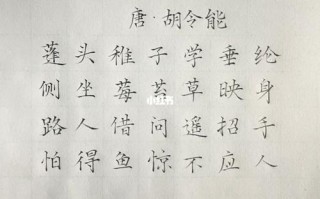 唐·胡令能
蓬头稚子学垂纶
侧坐莓苔草映身
路人借问遥招手
怕得鱼惊不应人
小红书